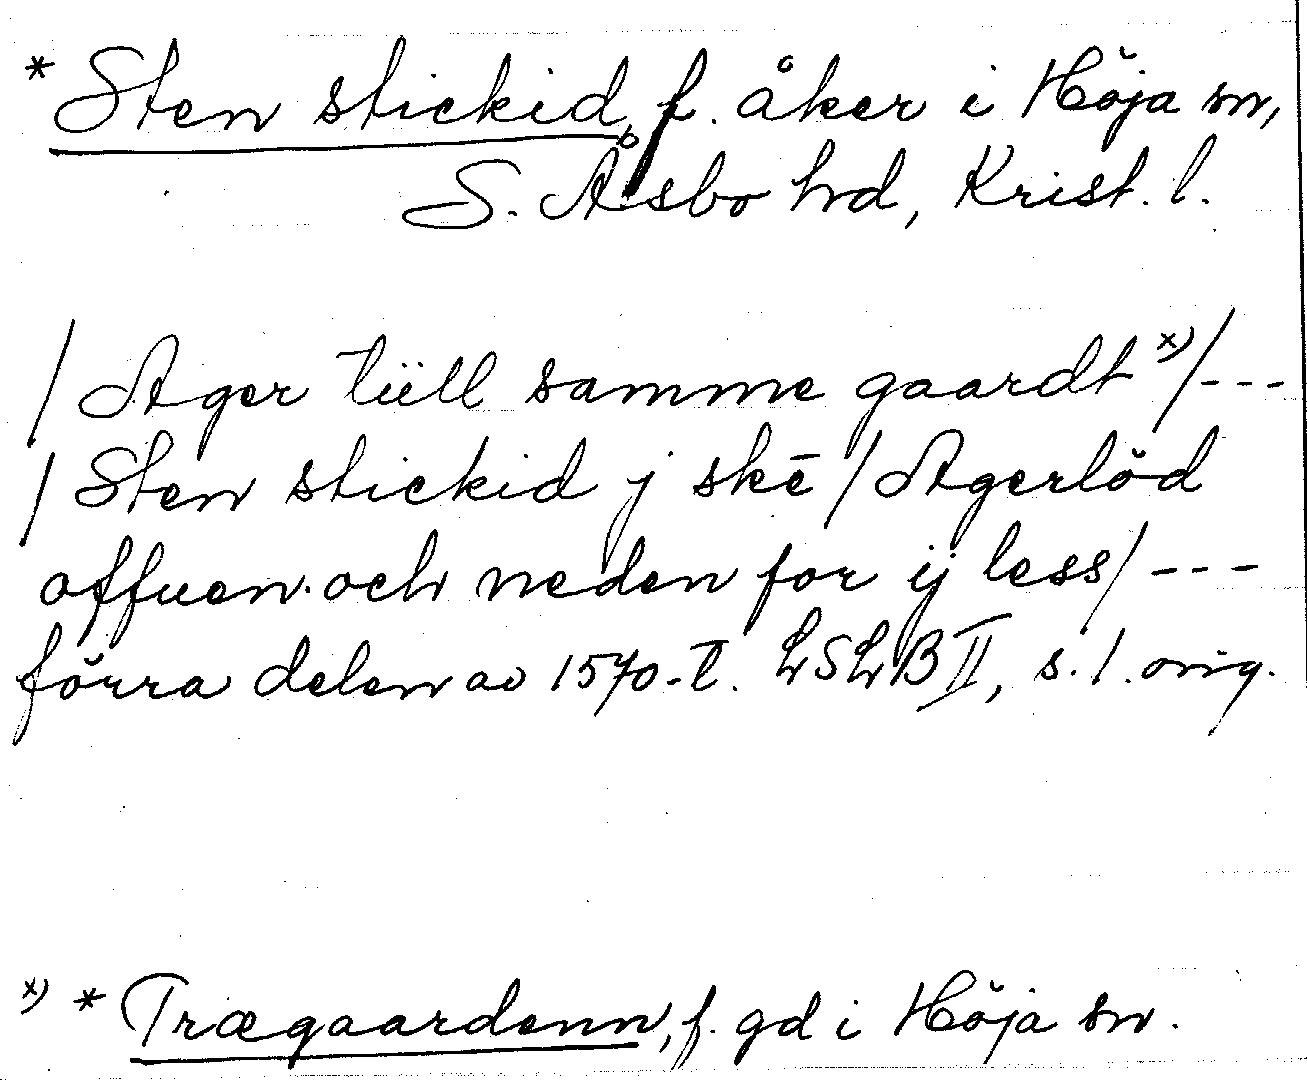 * Sten stickid, f. åker i Höja sn,
S. Åsbo hd, Krist. l.
/ Ager tiill samme gaardt x) / ---
/ Sten stickid j skē / Agerlöd
offuen och neden for ij less / ---
förra delen av 1570-t. LSLB II, s. 1. orig.
x) * Trægaardenn, f. gd i Höja sn.